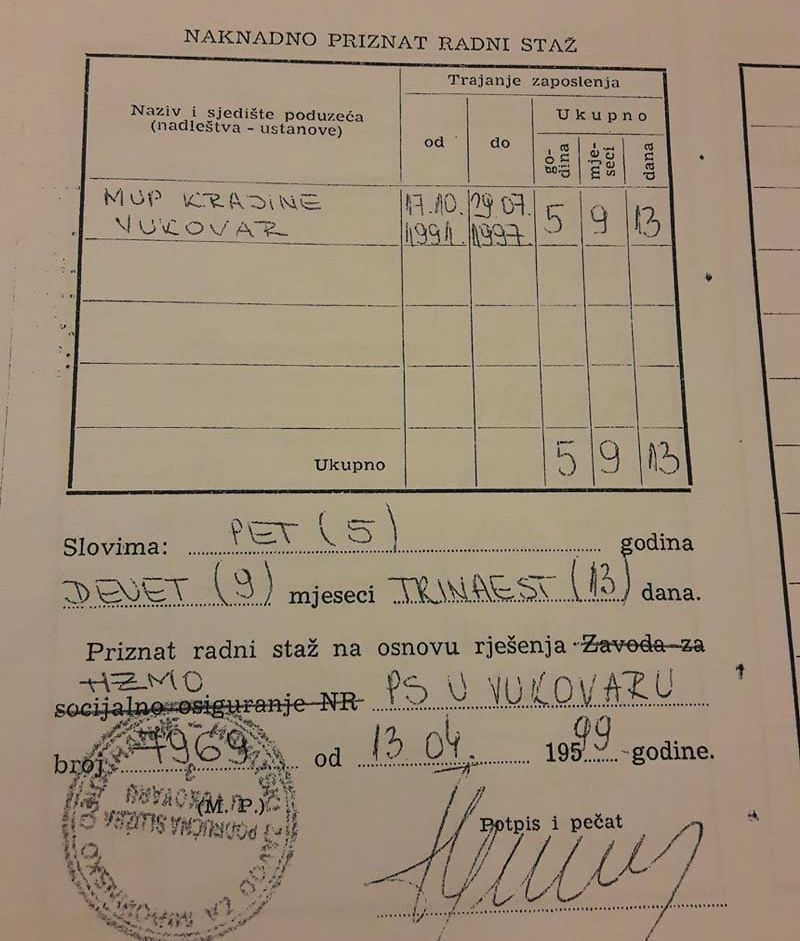 NAKNADNO PRIZNAT RADNI STAŽ
Naziv i sjedište poduzeća
(nadleštva - ustanove)
Trajanje zaposlenja
od
do
Ukupno
go-
dina
mje-
seci
dana
MUP KRAJINE
VUKOVAR
17.10.
1991.
29.07.
1997.
5
9
13
Ukupno 5 9 13
Slovima: PET (5) godina
DEVET (9) mjeseci TRINAEST (13) dana.
Priznat radni staž na osnovu rješenja Zavoda za
HZMO
socijalno osiguranje NR PS U VUKOVARU
broj 7969 od 13 04. 195 99 godine.
(M. P.)
PODRUČNA SLUŽBA
Potpis i pečat